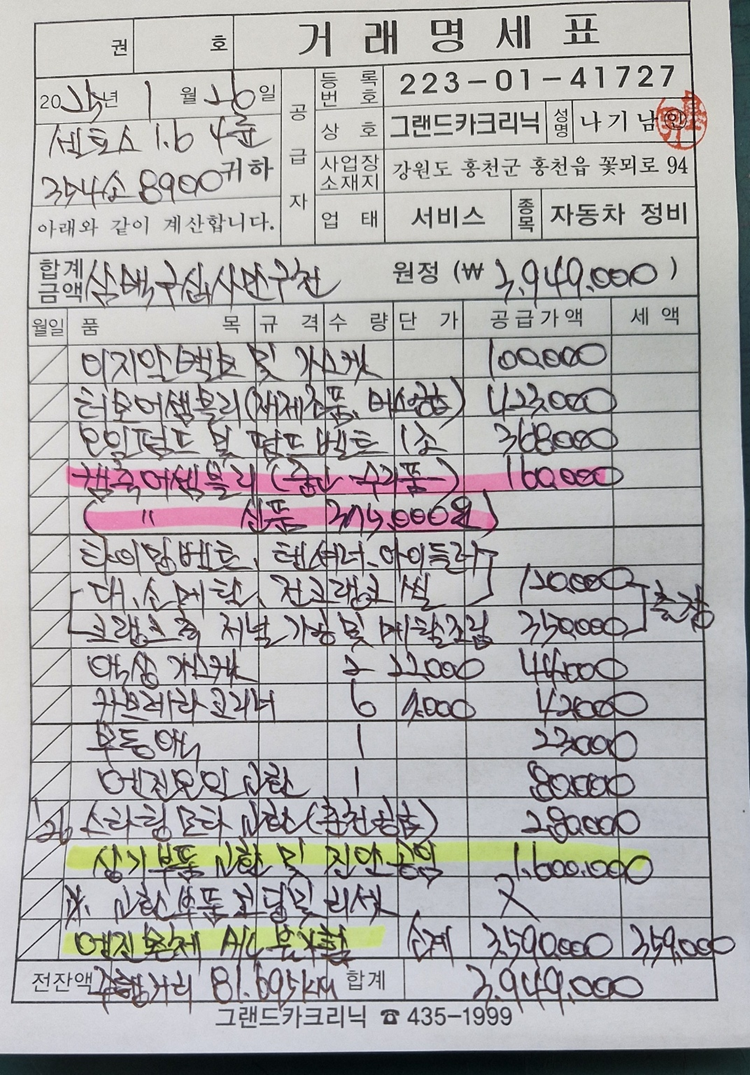 권 호 거래명세표
2025년 1월 26일
등록번호 223-01-41727
센토스 1.6 4륜
354소 8900 귀하
공급자
상호 그랜드카크리닉 성명 나기남 인
사업장소재지 강원도 홍천군 홍천읍 꽃뫼로 94
아래와 같이 계산합니다.
업태 서비스 종목 자동차 정비
합계금액 삼백구십사만구천 원정 (₩ 3,949,000)
월일 품목 규격 수량 단가 공급가액 세액
이지알밸브 및 가스켓 100,000
터보어셈블리(재제조품, ) 423,000
오일펌프 및 펌프벨트 1조 368,000
캠축어셈블리 (중고 수리품) 160,000
( " 신품 375,000원)
타이밍벨트, 텐셔너, 아이들러
대,소메탈, 전크랭크 씰 120,000
크랭크축 저널 가공 및 메탈조립 350,000 출장
가스켓 2 22,000 44,000
카브레타크리너 6 7,000 42,000
부동액 1 23,000
엔진오일교환 1 80,000
'26 스타팅모타 교환(춘천) 280,000
상기부품 교환 및 진단공임 1,600,000
※. 교환부품 코딩및 리셋 X
엔진분제 A/S 불가함 소계 3,590,000 359,000
전잔액 주행거리 81,695km 합계 3,949,000
그랜드카크리닉 ☎ 435-1999